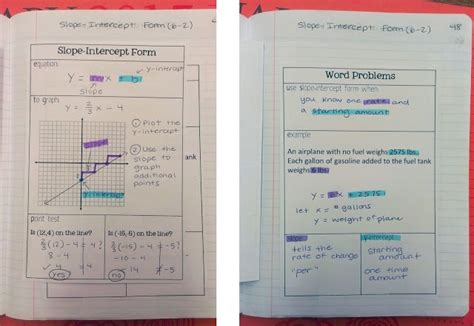 Slope-Intercept Form (6-2)
Slope-Intercept Form
equation
y = mx + b
y-intercept
slope
to graph
y = 2/3 x - 4
① Plot the
y-intercept
② Use the
slope to
graph
additional
points
slope
y-intercept
point test
Is (12,4) on the line?
2/3(12) - 4 = 4?
8 - 4
4 = 4
yes
Is (-15,-5) on the line?
2/3(-15) - 4 = -5?
-10 - 4
-14 ≠ -5
no
ank
Slope-Intercept Form (6-2)
48
Word Problems
use slope-intercept form when
you know one rate and
a starting amount
example
An airplane with no fuel weighs 2575 lbs.
Each gallon of gasoline added to the fuel tank
weighs 6 lbs.
y = 6x + 2575
let x = # gallons
y = weight of plane
slope
tells the
rate of change
"per"
y-intercept
starting
amount
one time
amount